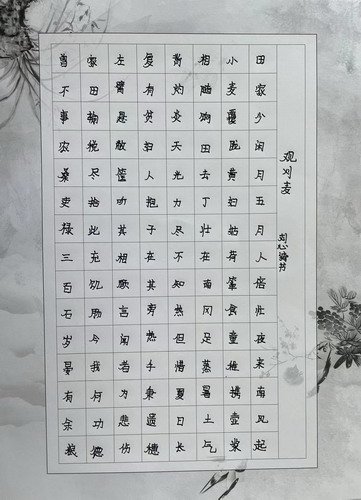 观刈麦
田家少闲月五月人倍忙夜来南风起
小麦覆陇黄妇姑荷箪食童稚携壶浆
相随饷田去丁壮在南冈足蒸暑土气
背灼炎天光力尽不知热但惜夏日长
复有贫妇人抱子在其旁手秉遗穗
左臂悬敝筐其相顾言闻者为悲伤
家田输税尽拾此充饥肠今我何功德
曾不事农桑吏禄三百石岁晏有余粮